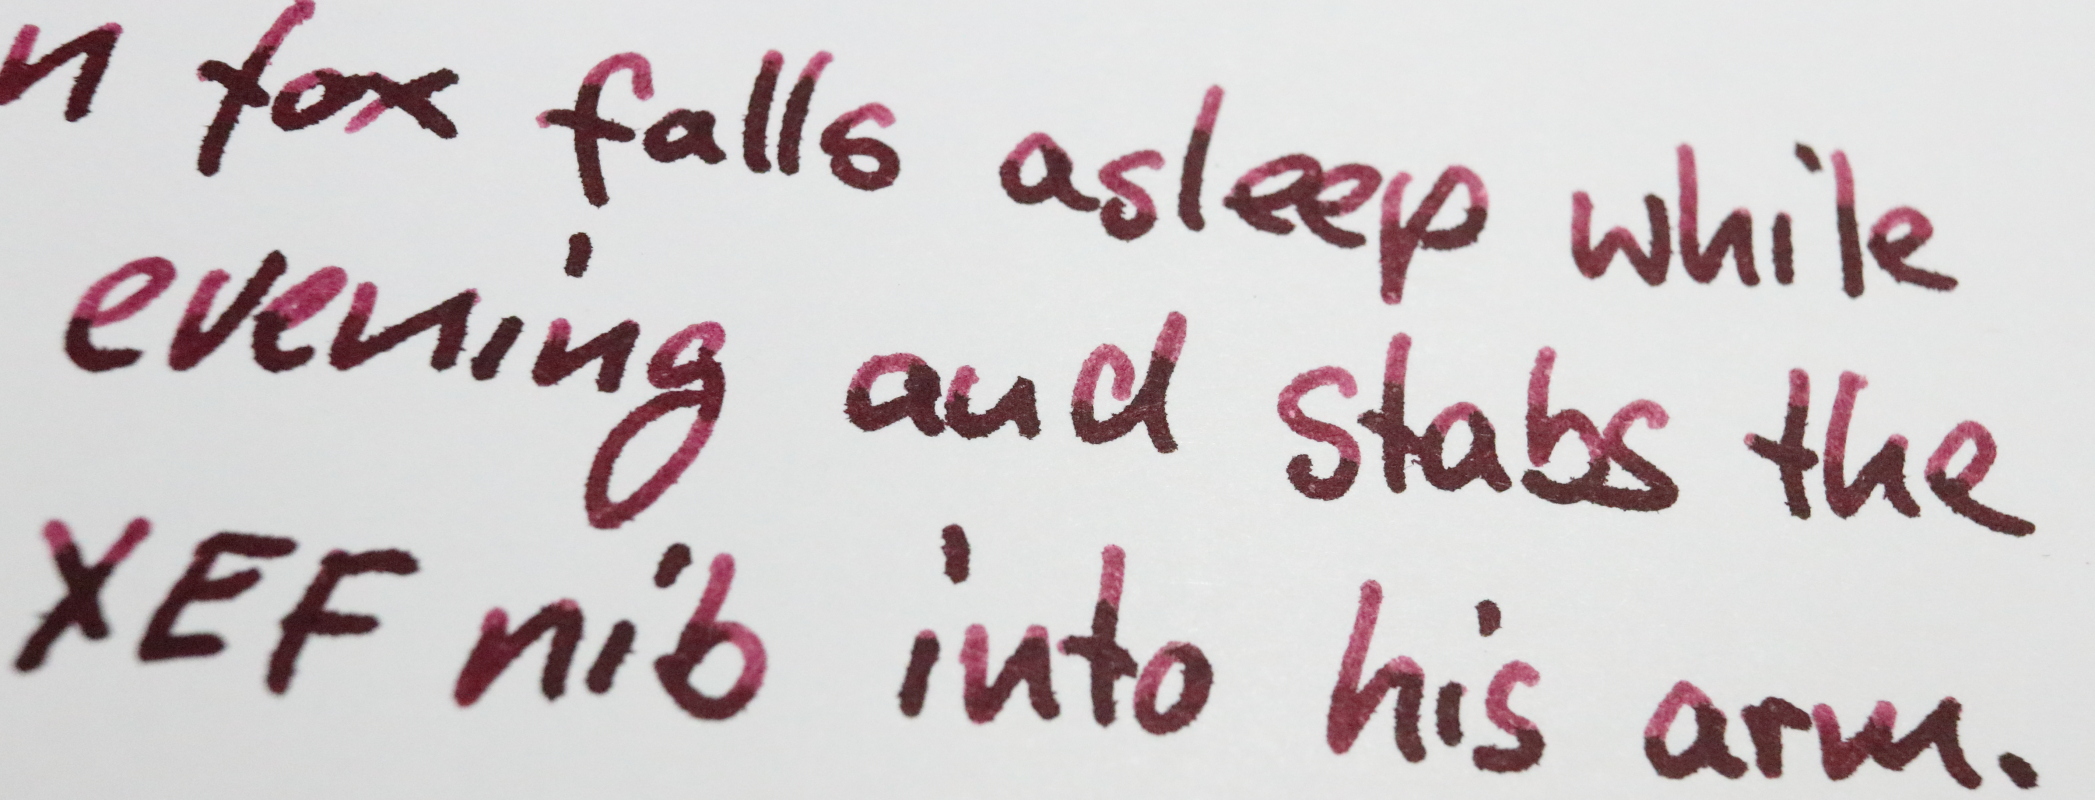 n fox falls asleep while
evening and stabs the
XEF nib into his arm.